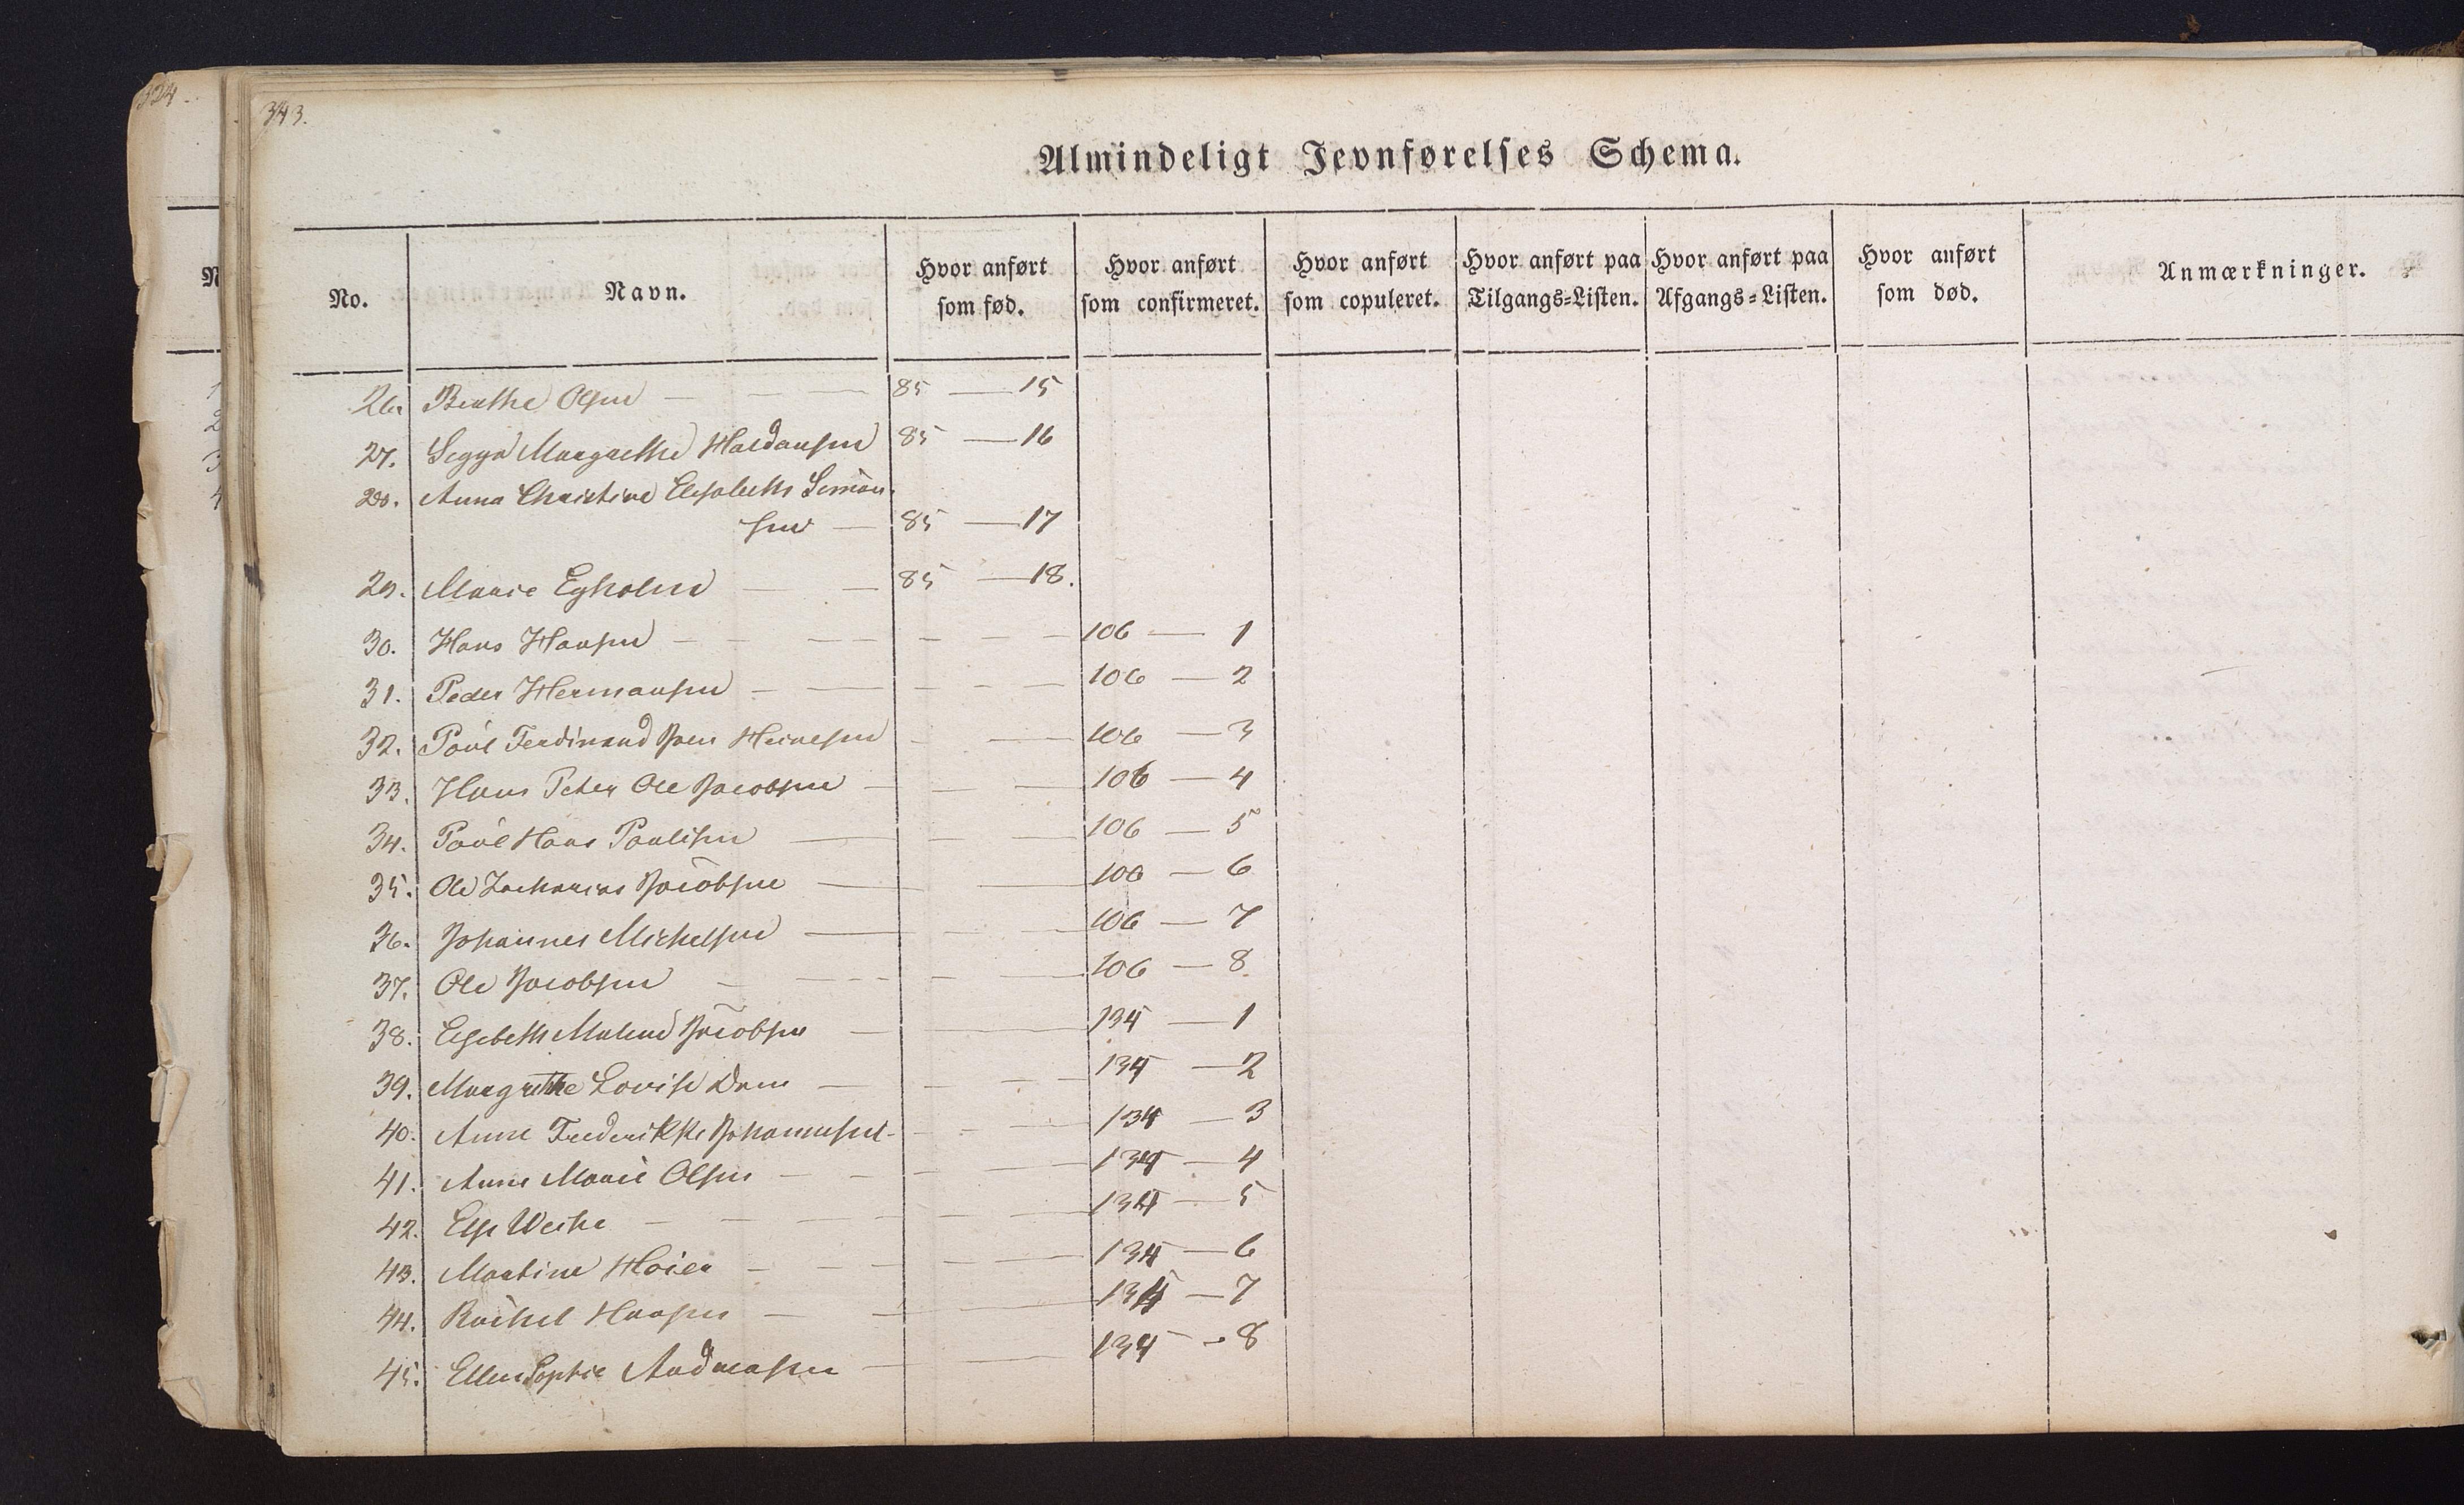 324.
343.
Almindeligt Jevnførelses Schema.
No. Navn. Hvor anført som fød. Hvor anført som confirmeret. Hvor anført som copuleret. Hvor anført paa Tilgangs=Listen. Hvor anført paa Afgangs=Listen. Hvor anført som død. Anmærkninger.
26. Birthe Olsen — — — 85 — 15
27. Margrethe Haldansen 85 — 16
28. Anna Christine Elisabeth Simon-
sen — 85 — 17
29. Marie Egholm — — 85 — 18.
30. Hans Hansen — — — — — — — 106 — 1
31. Peder Hermansen — — — — — 106 — 2
32. Poul Ferdinand Joen Heinesen — — 106 — 3
33. Hans Peter Ole Jacobsen — — — 106 — 4
34. Poul Hans Poulsen — — — 106 — 5
35. Ole Zacharias Jacobsen — — 106 — 6
36. Johannes Michelsen — — — 106 — 7
37. Ole Jacobsen — — — — — 106 — 8.
38. Elsebeth Malene Jacobsen — — 134 — 1
39. Margrethe Lovise Dam — — — — 134 — 2
40. Anne Frederikke Johannesen — — — 134 — 3
41. Anne Marie Olsen — — — — — 134 — 4
42. Else Weihe — — — — — — — 134 — 5
43. Martine Høier — — — — — — 134 — 6
44. Rachel Hansen — — — 134 — 7
45. Ellen Sophie Andreasen — — 134 — 8